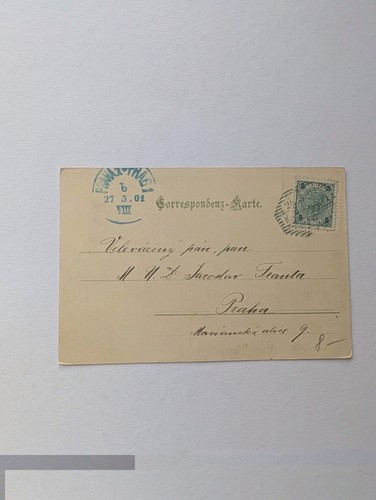 PRAHA 1 PRAG 1
b
27 3.01
VIII
Correspondenz-Karte.
Velevážený pán, pan
M U D. Jaroslav Franta
Praha
Mariánská ulice 9.
8-